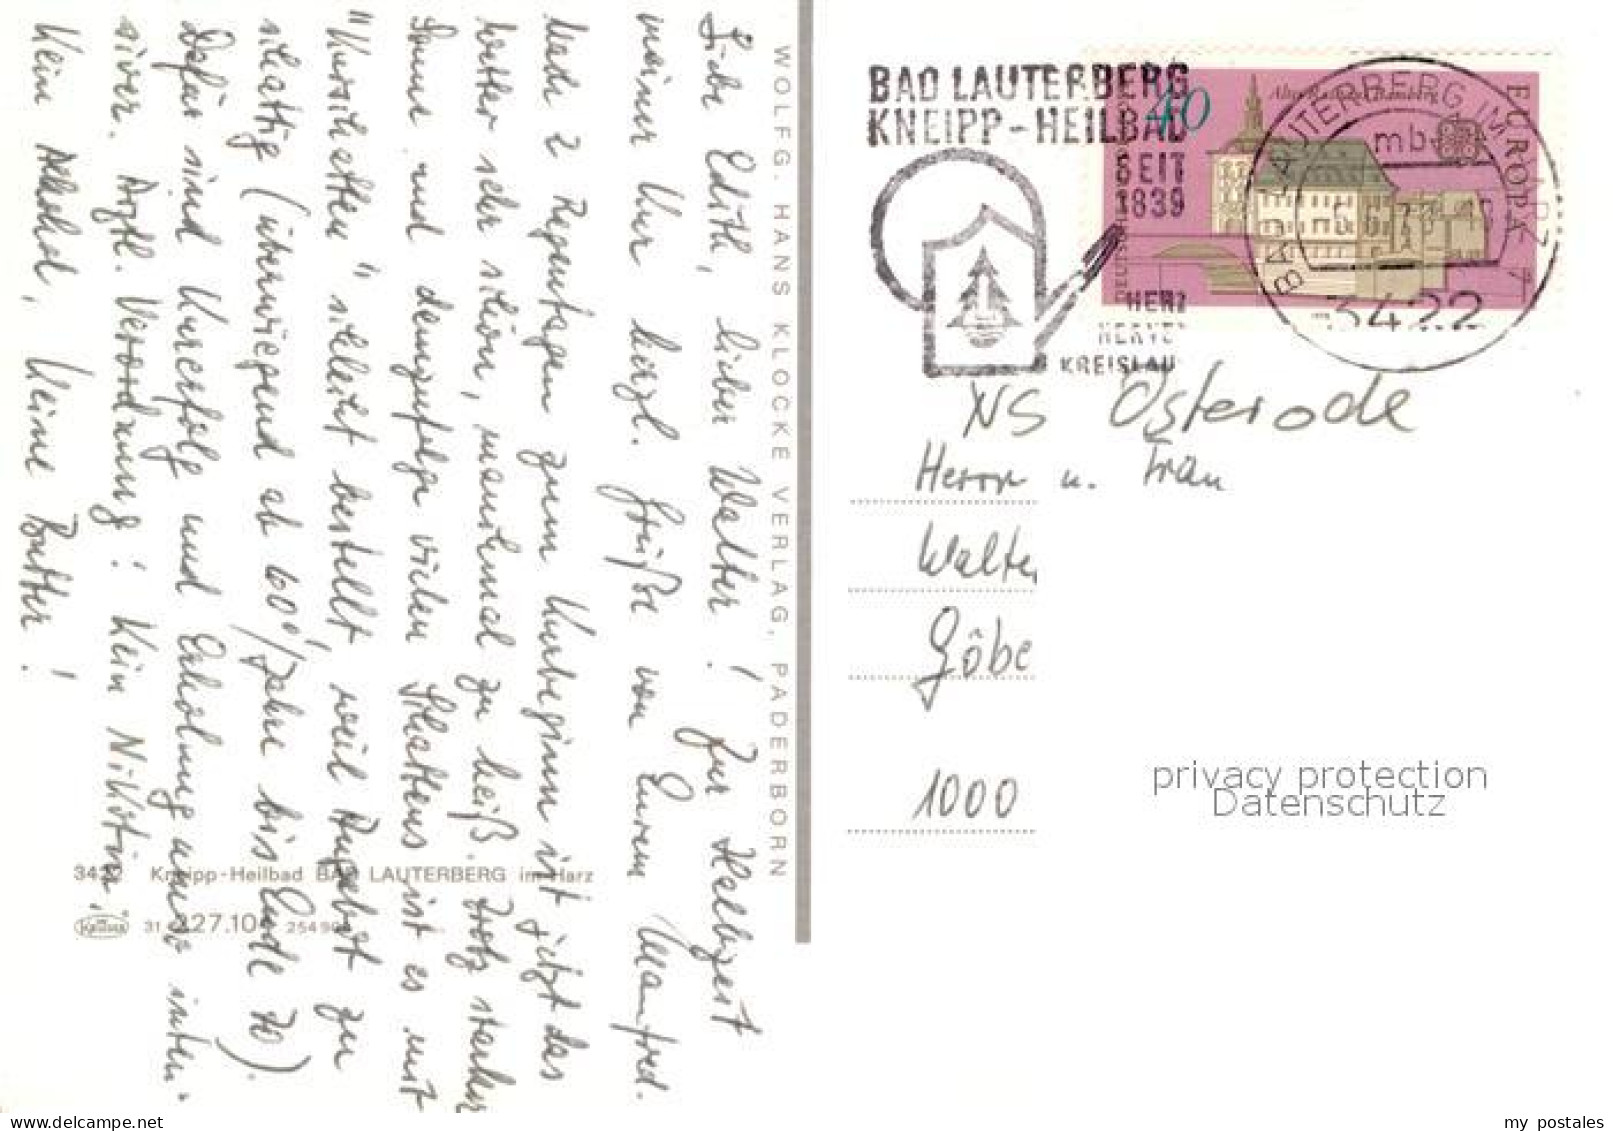 Liebe Edith, lieber Walter! Zur Halbzeit
meiner Kur herzl. Grüße von Eurem Manfred.
Nach 2 Regentagen zum Kurbeginn ist jetzt das
Wetter sehr schön, manchmal zu heiß. Trotz starker
Sonne und demzufolge vielen Schattens ist es mit
"Kurschatten" schlecht bestellt, weil Angebot zu
schattig (überwiegend ab 60 Jahre bis Ende 70).
Dafür sind Kurerfolg und Erholung umso inten-
siver. Ärztl. Verordnung: Kein Nikotin,
kein Alkohol, keine Butter!
WOLFG. HANS KLOCKE VERLAG, PADERBORN
3422 Kneipp-Heilbad BAD LAUTERBERG im Harz
KRÜGER
31 227.10 254 90
BAD LAUTERBERG
KNEIPP-HEILBAD
SEIT
1839
HERZ
NERVEN
KREISLAU
40
Altes Rathaus Bamberg
EUROPA
DEUTSCHE
BAD LAUTERBERG IM HARZ 1
mb
3422
XVS Osterode
Herrn u. Frau
Walte
Göbe
1000
privacy protection
Datenschutz
delcampe.net
my postales